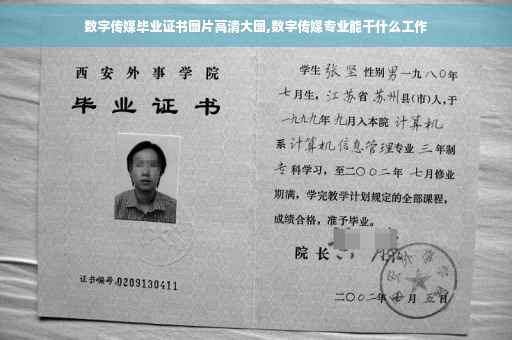 数字传媒毕业证书图片高清大图,数字传媒专业能干什么工作
西安外事学院
毕业证书
证书编号:0209130411
学生 张坚 性别男一九八〇年
七月生，江苏省苏州县(市)人,于
一九九九年九月入本院 计算机
系计算机信息管理专业 三 年制
专科学习，至二〇〇二年 七月修业
期满，学完教学计划规定的全部课程,
成绩合格，准予毕业。
院长
二〇〇二年 月五日